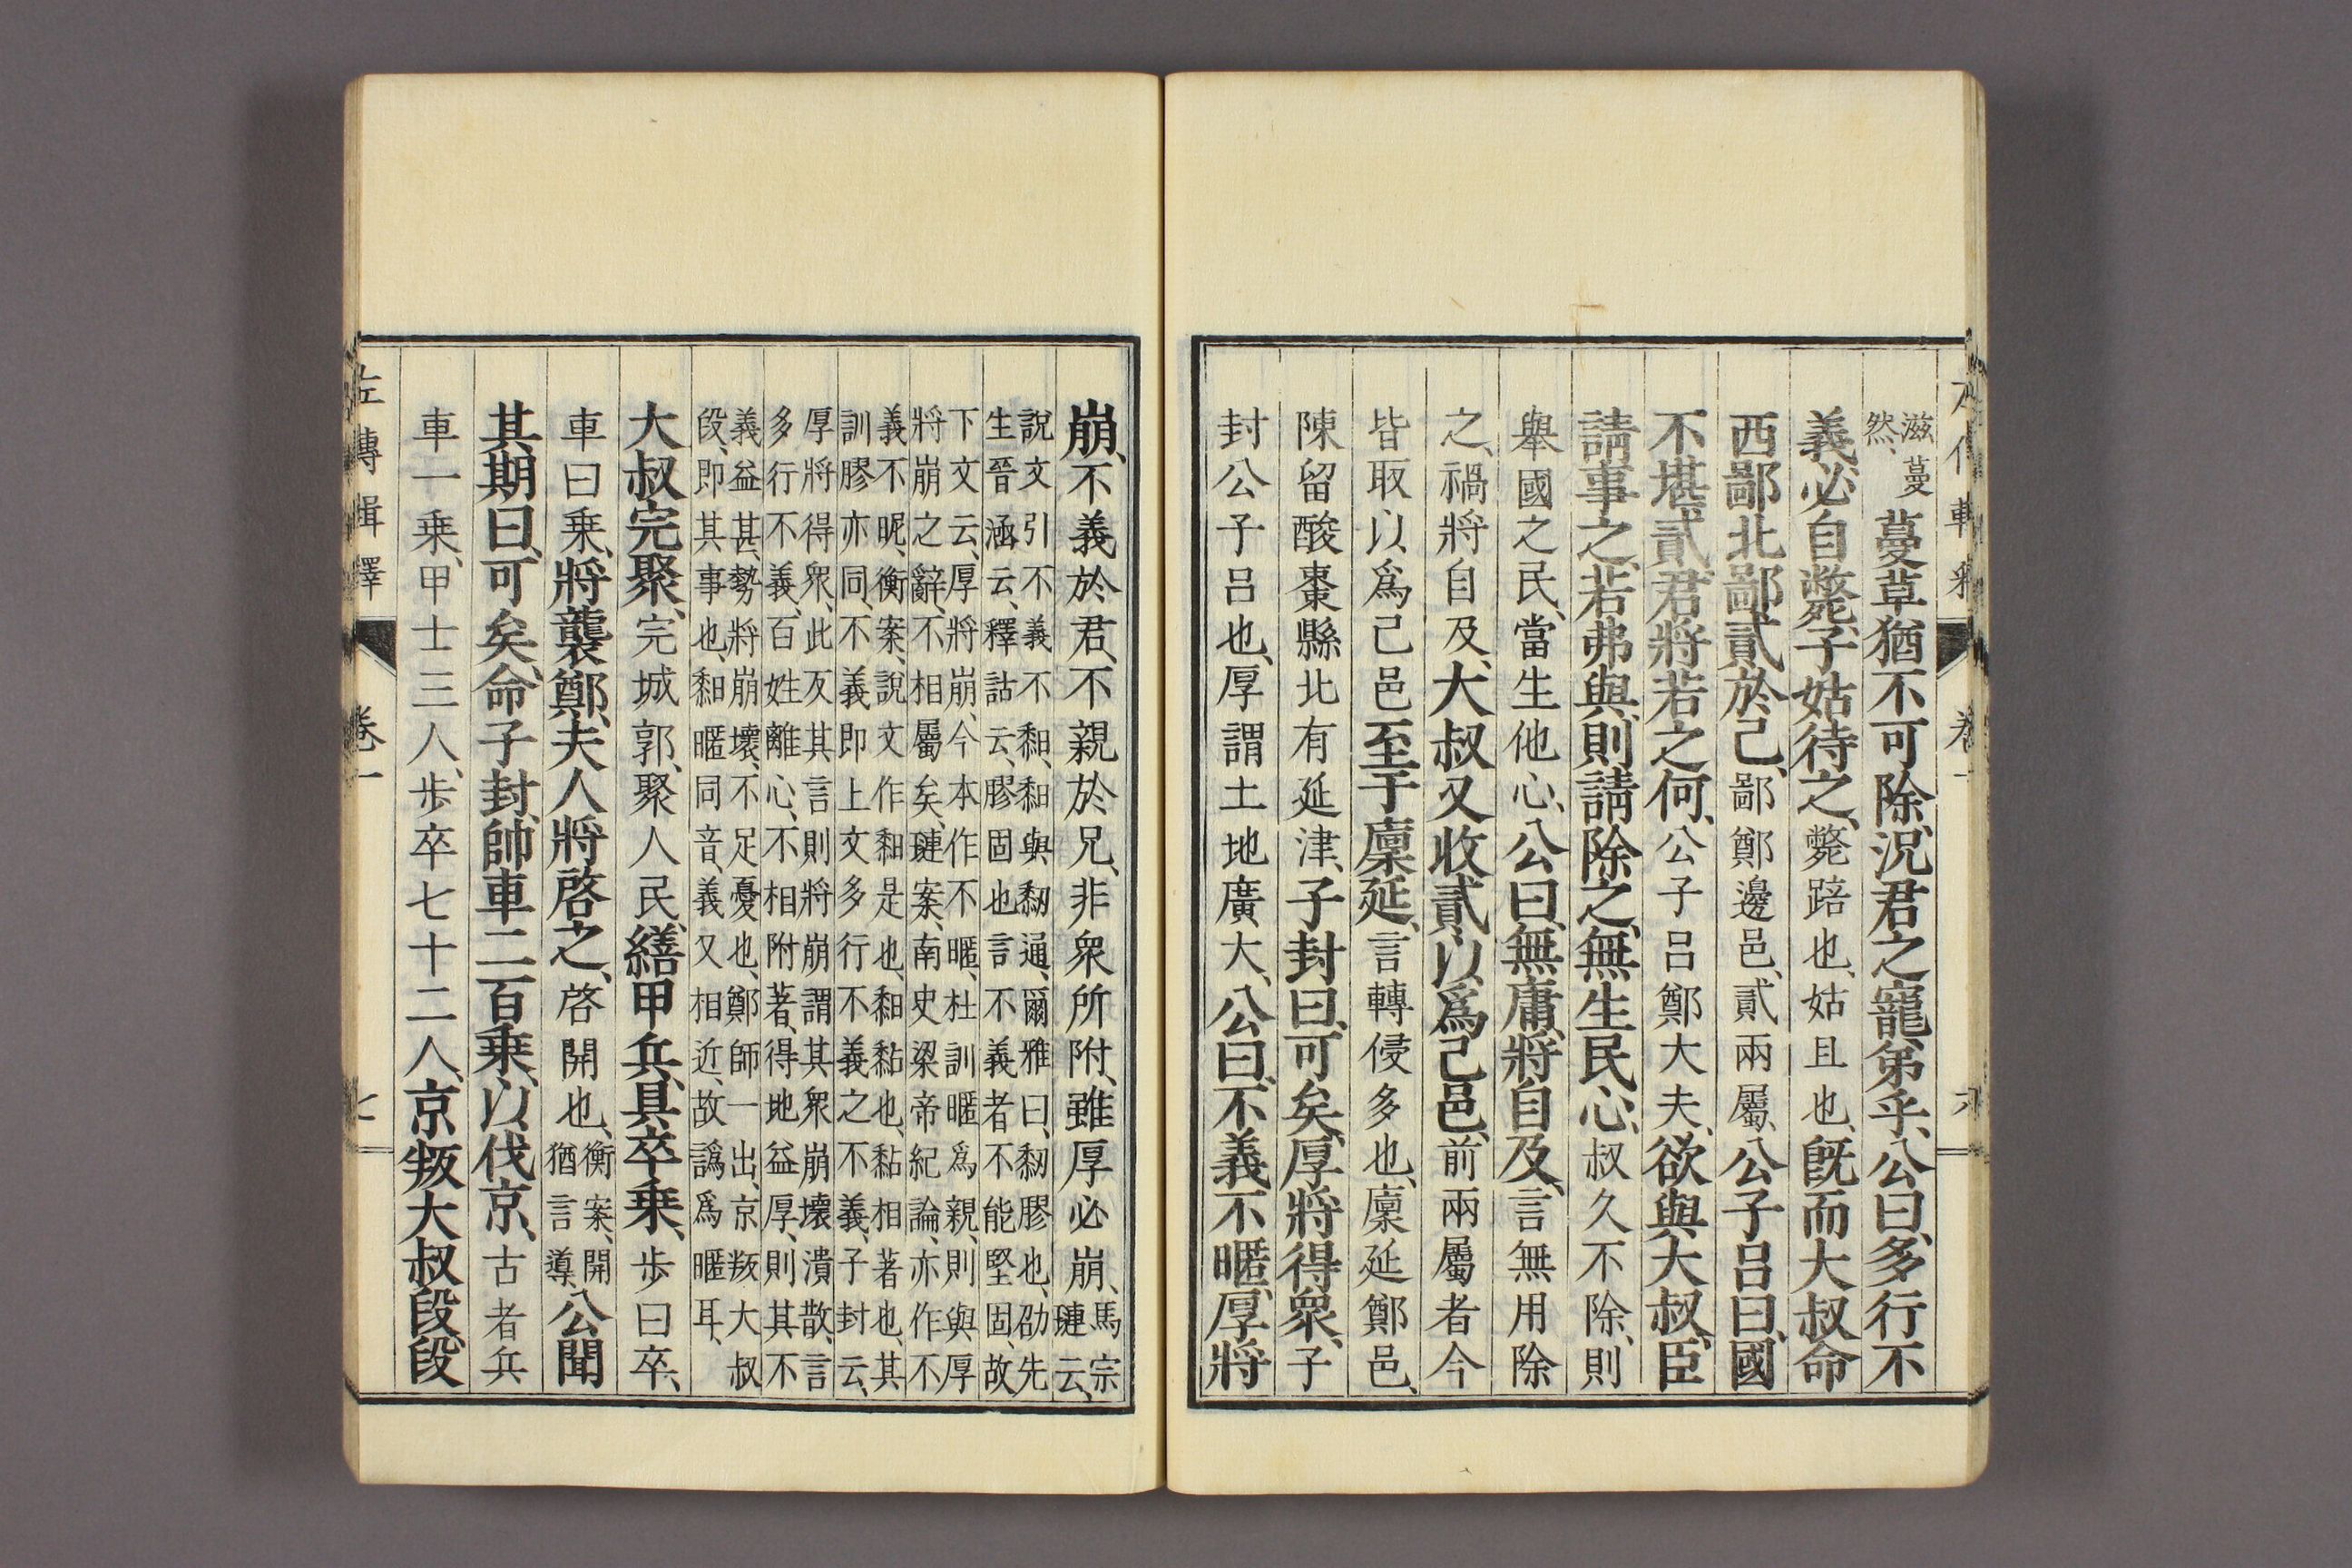 滋蔓
然、
蔓草猶不可除、況君之寵弟乎、公曰、多行不
義必自斃、子姑待之、斃踣也、姑且也、既而大叔命
西鄙北鄙貳於己、鄙鄭邊邑、貳兩屬、公子呂曰、國
不堪貳、君將若之何、公子呂鄭大夫、欲與大叔、臣
請事之、若弗與、則請除之、無生民心、叔久不除、則
舉國之民、當生他心、公曰、無庸、將自及、言無用除
之、禍將自及、大叔又收貳以爲己邑、前兩屬者今
皆取以爲己邑、至于廩延、言轉侵多也、廩延鄭邑、
陳留酸棗縣北有延津、子封曰、可矣、厚將得衆、子
封公子呂也、厚謂土地廣大、公曰、不義不暱、厚將
崩、不義於君、不親於兄、非衆所附、雖厚必崩、
馬宗
璉云、
說文引不義不䵑、䵑與䵒通、爾雅曰、䵒膠也、劭先
生晉涵云、釋詁云、膠固也、言不義者不能堅固、故
下文云、厚將崩、今本作不暱、杜訓暱爲親、則與厚
將崩之辭、不相屬矣、璉案、南史梁帝紀論、亦作不
義不昵、衡案、說文作䵑是也、䵑黏也、黏相著也、其
訓膠亦同、不義即上文多行不義之不義、子封云、
厚將得衆、此反其言、則將崩謂其衆崩壞潰散、言
多行不義、百姓離心、不相附著、得地益厚、則其不
義益甚、勢將崩壞、不足憂也、鄭師一出、京叛大叔
段、即其事也、䵑暱同音、義又相近、故譌爲暱耳、
大叔完聚、完城郭、聚人民、繕甲兵、具卒乘、步曰卒、
車曰乘、將襲鄭、夫人將啓之、啓開也、
衡案、開
猶言導、
公聞
其期曰、可矣、命子封帥車二百乘、以伐京、古者兵
車一乘、甲士三人、步卒七十二人、京叛大叔段、段
左傳輯釋 卷一